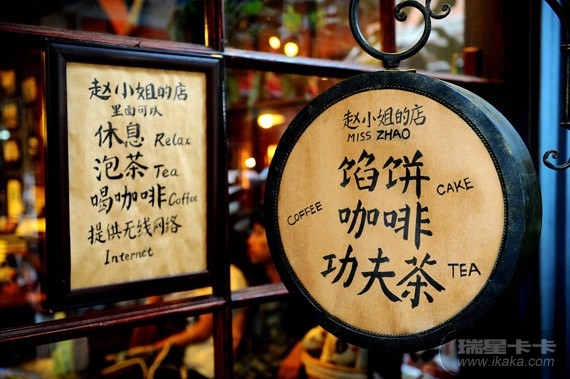 赵小姐的店
里面可以
休息 Relax
泡茶 Tea
喝咖啡 Coffee
提供无线网络
Internet
赵小姐的店
MISS ZHAO
馅饼 CAKE
COFFEE 咖啡
功夫茶 TEA
瑞星卡卡
www.ikaka.com